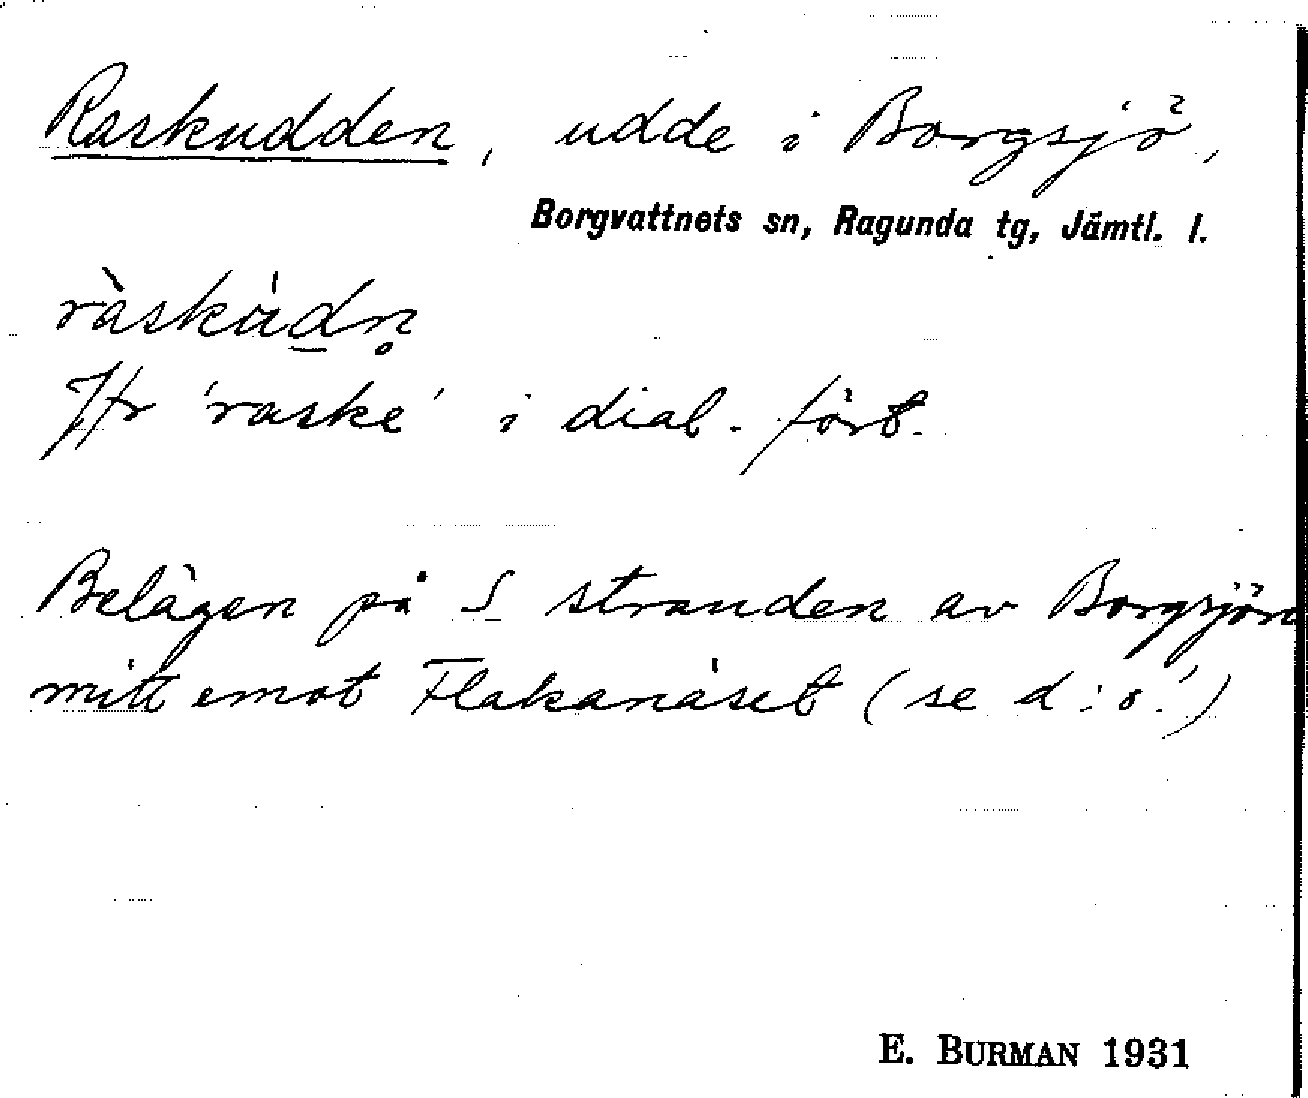 Raskudden, udde i Borgsjö,
Borgvattnets sn, Ragunda tg, Jämtl. l.
ràskùdn̥
Jfr 'raske' i dial. förb.
Belägen på S stranden av Borgsjön
mitt emot Flakanäset (se d:o!)
E. BURMAN 1931